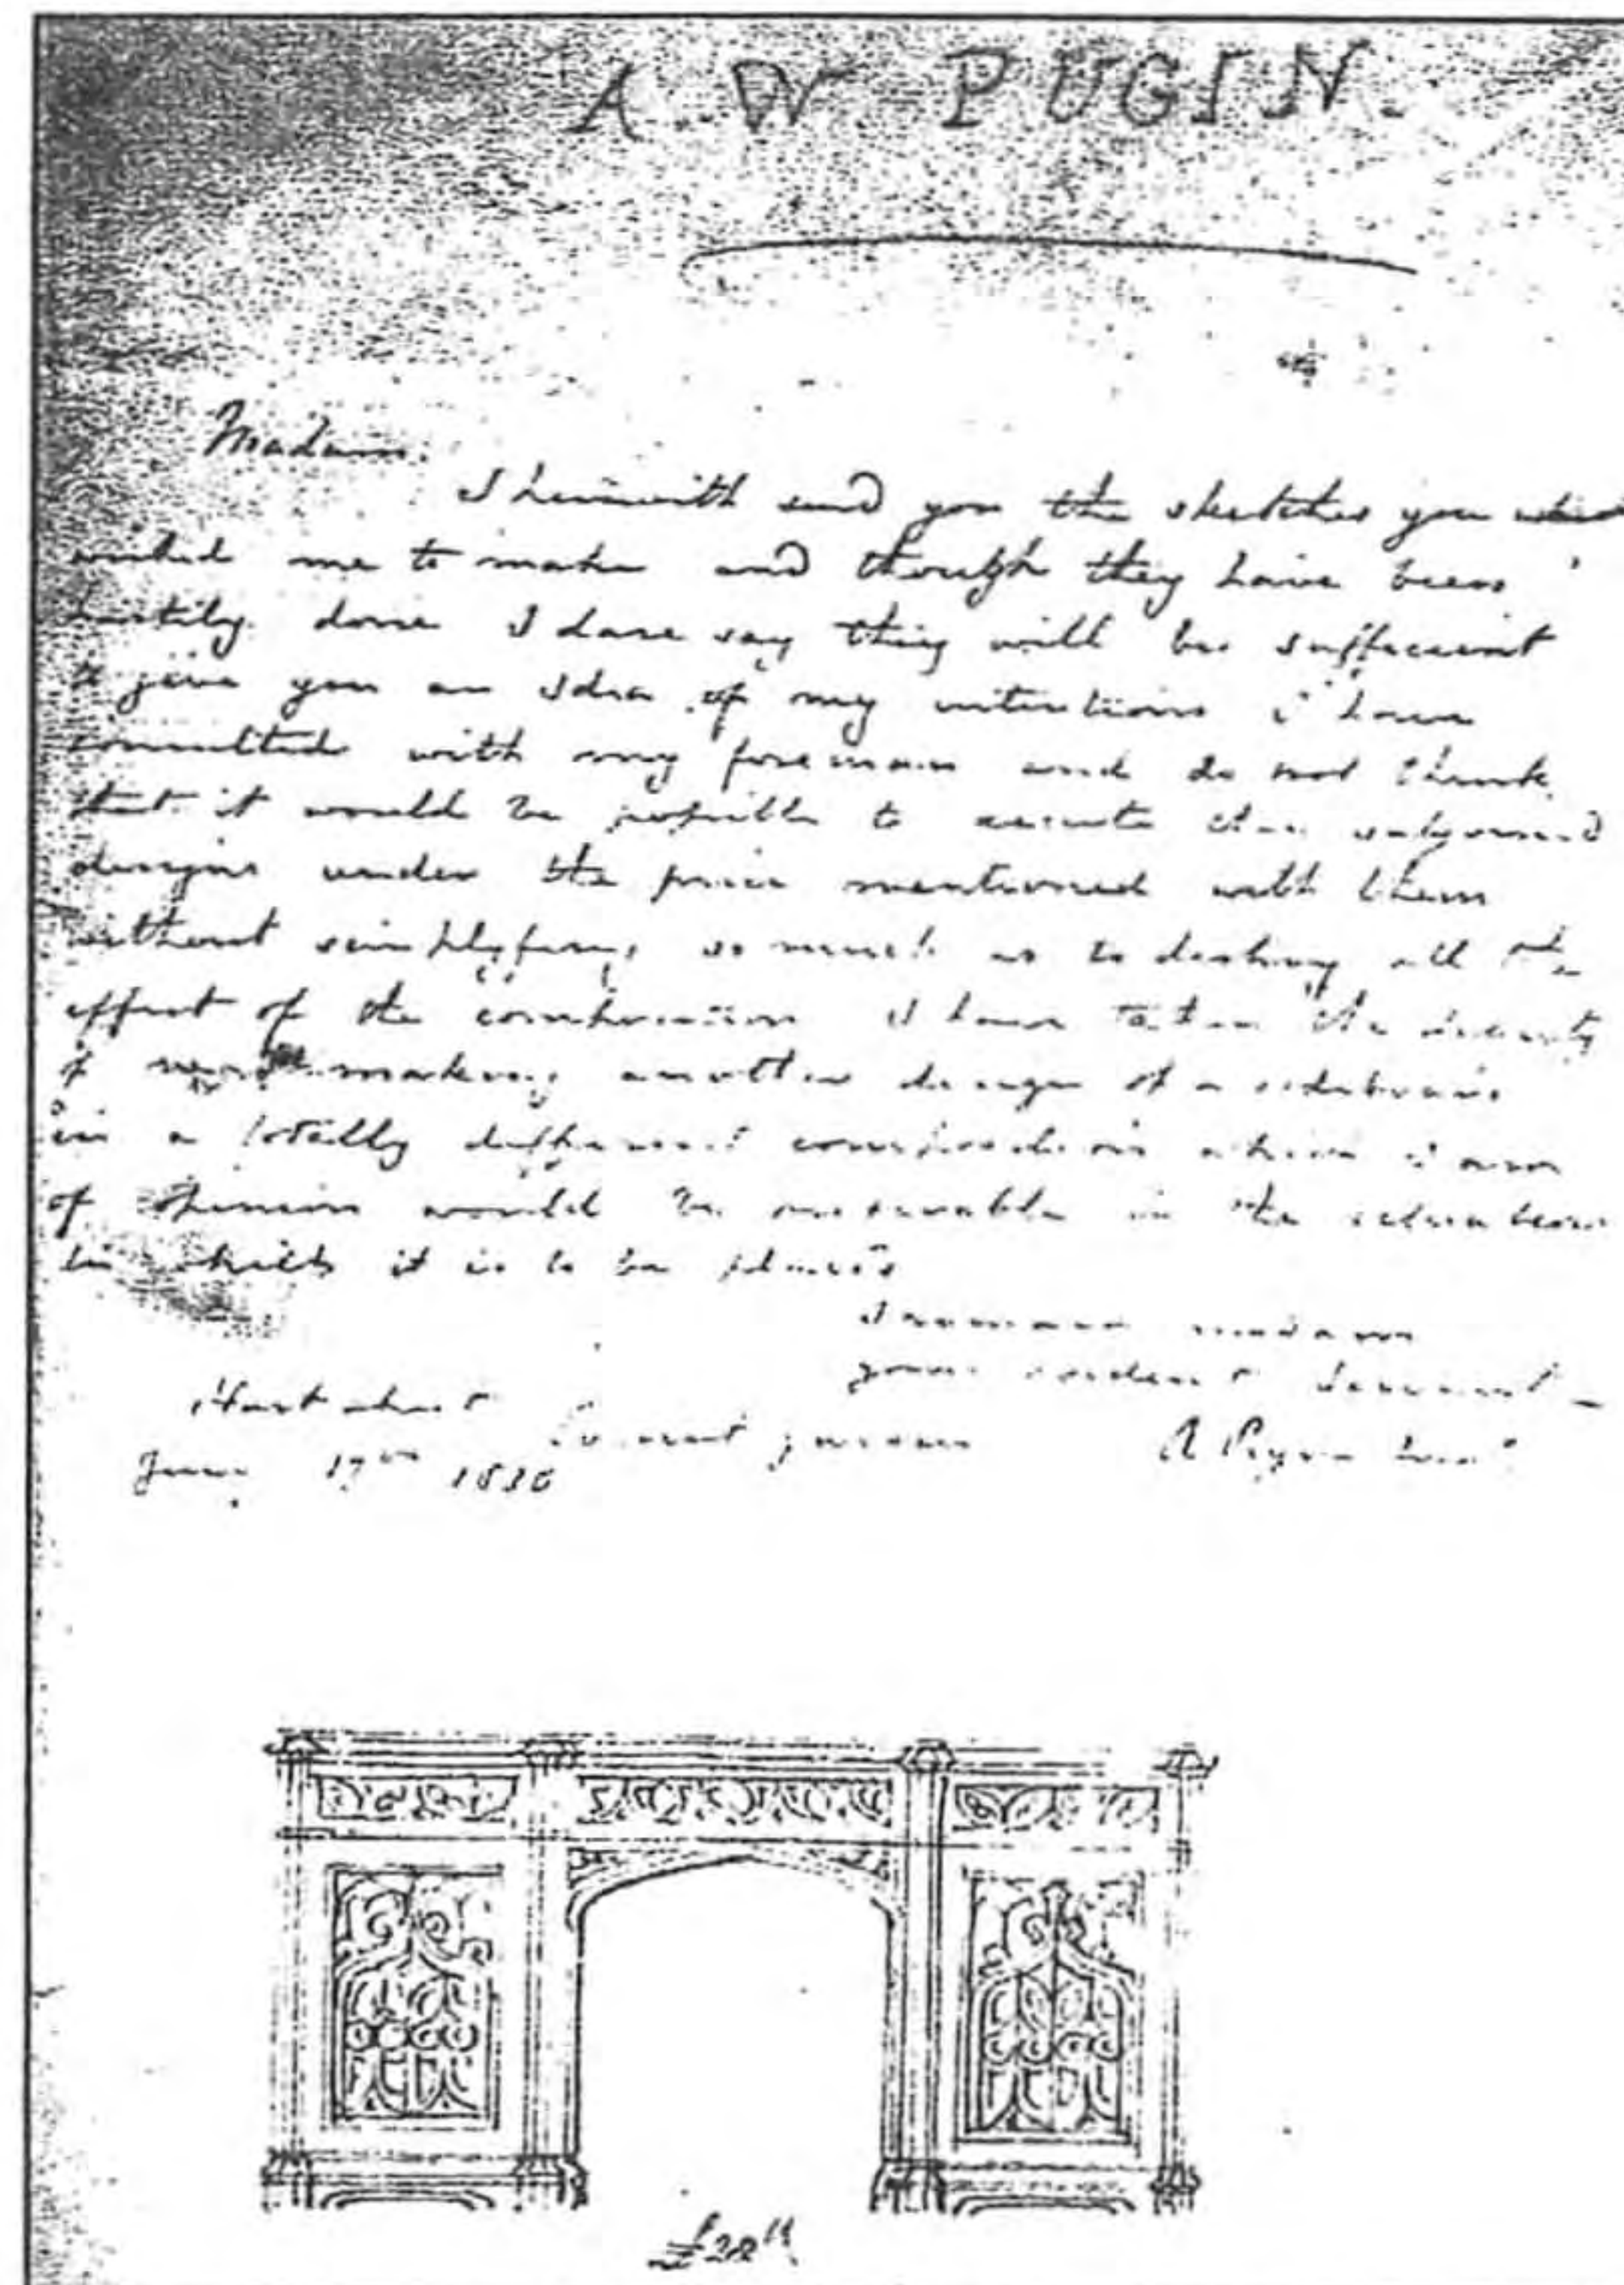 A W PUGIN.
Madam.
I herewith send you the sketches you
wished me to make and though they have been
hastily done I dare say they will be sufficient
to give you an Idea of my intentions i have
consulted with my foreman and do not think
that it would be possible to execute the
designs under the price mentioned with them
without simplyfing so much as to destroy all the
effect of the I have taken the liberty
of making another design of a sideboard
in a totally different composition which I am
of opinion would be in the situation
in which it is to be placed
I remain madam
your servant
Covent garden
June 17th 1830
A Pugin
£28